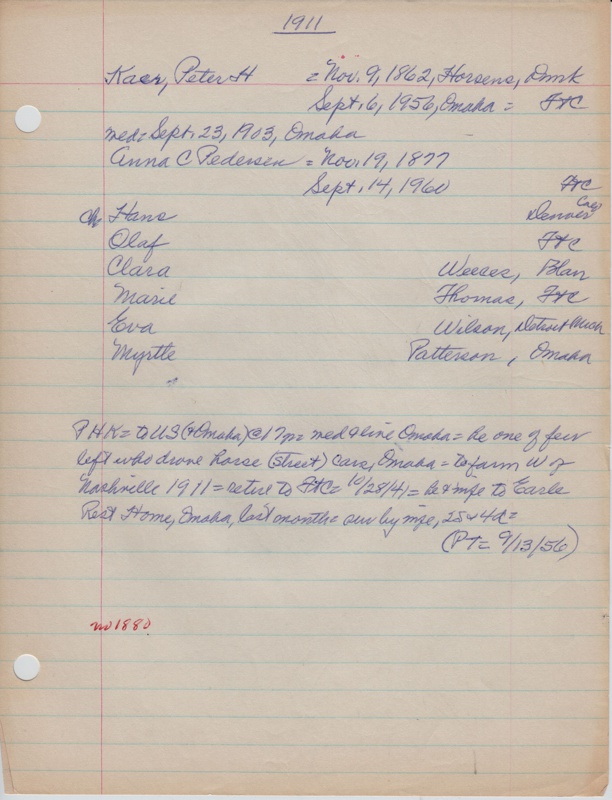 1911
Kaer, Peter H = Nov. 9, 1862, Horsens, Dmk
Sept. 6, 1956, Omaha = FtC
med = Sept. 23, 1903, Omaha
Anna C Pedersen = Nov. 19, 1877
Sept. 14, 1960 FtC
ch. Hans Denver
Olaf FtC
Clara Blair
Marie Thomas, FtC
Eva Wilson, Detroit Mich
Myrtle Patterson, Omaha
PHK = to US (& Omaha) @ 17 = med & live Omaha = he one of few
left who drove horse (street) cars, Omaha = to farm W of
Nashville 1911 = retire to FtC = 10/28/41 = he & mfe to Earle
Rest Home, Omaha, last months = surv by mfe, 2s & 4d =
(PT = 9/13/56)
no 1880